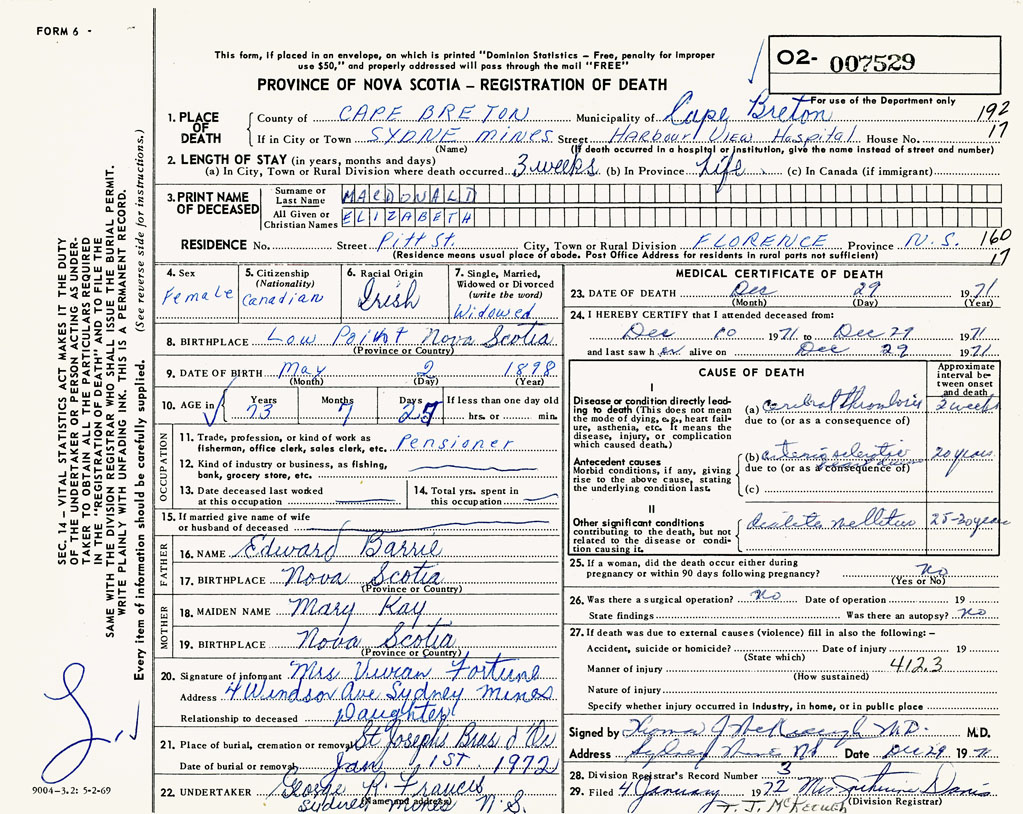 FORM 6 -
This form, if placed in an envelope, on which is printed "Dominion Statistics – Free, penalty for improper
use $50," and properly addressed will pass through the mail "FREE"
O2- 007529
PROVINCE OF NOVA SCOTIA – REGISTRATION OF DEATH
For use of the Department only
1. PLACE OF DEATH
County of CAPE BRETON Municipality of Cape Breton 192
If in City or Town SYDNE MINES Street HARBOUR VIEW HOSPITAL House No. 17
(Name) (If death occurred in a hospital or institution, give the name instead of street and number)
2. LENGTH OF STAY (in years, months and days)
(a) In City, Town or Rural Division where death occurred 3 weeks (b) In Province Life (c) In Canada (if immigrant)
3. PRINT NAME OF DECEASED
Surname or Last Name MACDONALD
All Given or Christian Names ELIZABETH
RESIDENCE No. Street Pitt St. City, Town or Rural Division FLORENCE Province N.S. 160
(Residence means usual place of abode. Post Office Address for residents in rural parts not sufficient) 17
4. Sex
Female
5. Citizenship
(Nationality)
Canadian
6. Racial Origin
Irish
7. Single, Married,
Widowed or Divorced
(write the word)
Widowed
8. BIRTHPLACE Low Point Nova Scotia
(Province or Country)
9. DATE OF BIRTH May 2 1898
(Month) (Day) (Year)
10. AGE in
Years 73 Months 7 Days
If less than one day old
hrs. or min.
OCCUPATION
11. Trade, profession, or kind of work as
fisherman, office clerk, sales clerk, etc. Pensioner
12. Kind of industry or business, as fishing,
bank, grocery store, etc.
13. Date deceased last worked
at this occupation
14. Total yrs. spent in
this occupation
15. If married give name of wife
or husband of deceased
FATHER
16. NAME Edward Barrie
17. BIRTHPLACE Nova Scotia
(Province or Country)
MOTHER
18. MAIDEN NAME Mary Kay
19. BIRTHPLACE Nova Scotia
(Province or Country)
20. Signature of informant Mrs Vivian Fortune
Address 4 Windsor Ave Sydney Mines
Relationship to deceased Daughter
21. Place of burial, cremation or removal St Josephs Bras d'Or
Date of burial or removal Jan 1ST 1972
22. UNDERTAKER George R. Francis
(Name and address)
Sydney Mines N.S.
MEDICAL CERTIFICATE OF DEATH
23. DATE OF DEATH Dec 29 1971
(Month) (Day) (Year)
24. I HEREBY CERTIFY that I attended deceased from:
Dec 10 1971 to Dec 29 1971
and last saw h er alive on Dec 29 1971
CAUSE OF DEATH
Approximate
interval be-
tween onset
and death
I
Disease or condition directly lead-
ing to death (This does not mean
the mode of dying, e.g., heart fail-
ure, asthenia, etc. It means the
disease, injury, or complication
which caused death.)
(a) cerebral thrombosis 3 weeks
due to (or as a consequence of)
Antecedent causes
Morbid conditions, if any, giving
rise to the above cause, stating
the underlying condition last.
(b) arteriosclerotic 20 years
due to (or as a consequence of)
(c)
II
Other significant conditions
contributing to the death, but not
related to the disease or condi-
tion causing it.
diabetes mellitus 25-30 years
25. If a woman, did the death occur either during
pregnancy or within 90 days following pregnancy? no
(Yes or No)
26. Was there a surgical operation? no Date of operation 19
State findings Was there an autopsy? no
27. If death was due to external causes (violence) fill in also the following: –
Accident, suicide or homicide? Date of injury 19
(State which)
Manner of injury 412.3
(How sustained)
Nature of injury
Specify whether injury occurred in industry, in home, or in public place
Signed by M.D. M.D.
Address Sydney Mines NS Date Dec 29 1971
28. Division Registrar's Record Number 3
29. Filed 4 January 1972 Mrs Davis
(Division Registrar)
T. J. McKeough
SEC. 14 – VITAL STATISTICS ACT MAKES IT THE DUTY
OF THE UNDERTAKER OR PERSON ACTING AS UNDER-
TAKER TO OBTAIN ALL THE PARTICULARS REQUIRED
IN THE "REGISTRATION OF DEATH" AND TO FILE THE
SAME WITH THE DIVISION REGISTRAR WHO SHALL ISSUE THE BURIAL PERMIT.
WRITE PLAINLY WITH UNFADING INK. THIS IS A PERMANENT RECORD.
Every item of information should be carefully supplied. (See reverse side for instructions.)
9004-3.2: 5-2-69